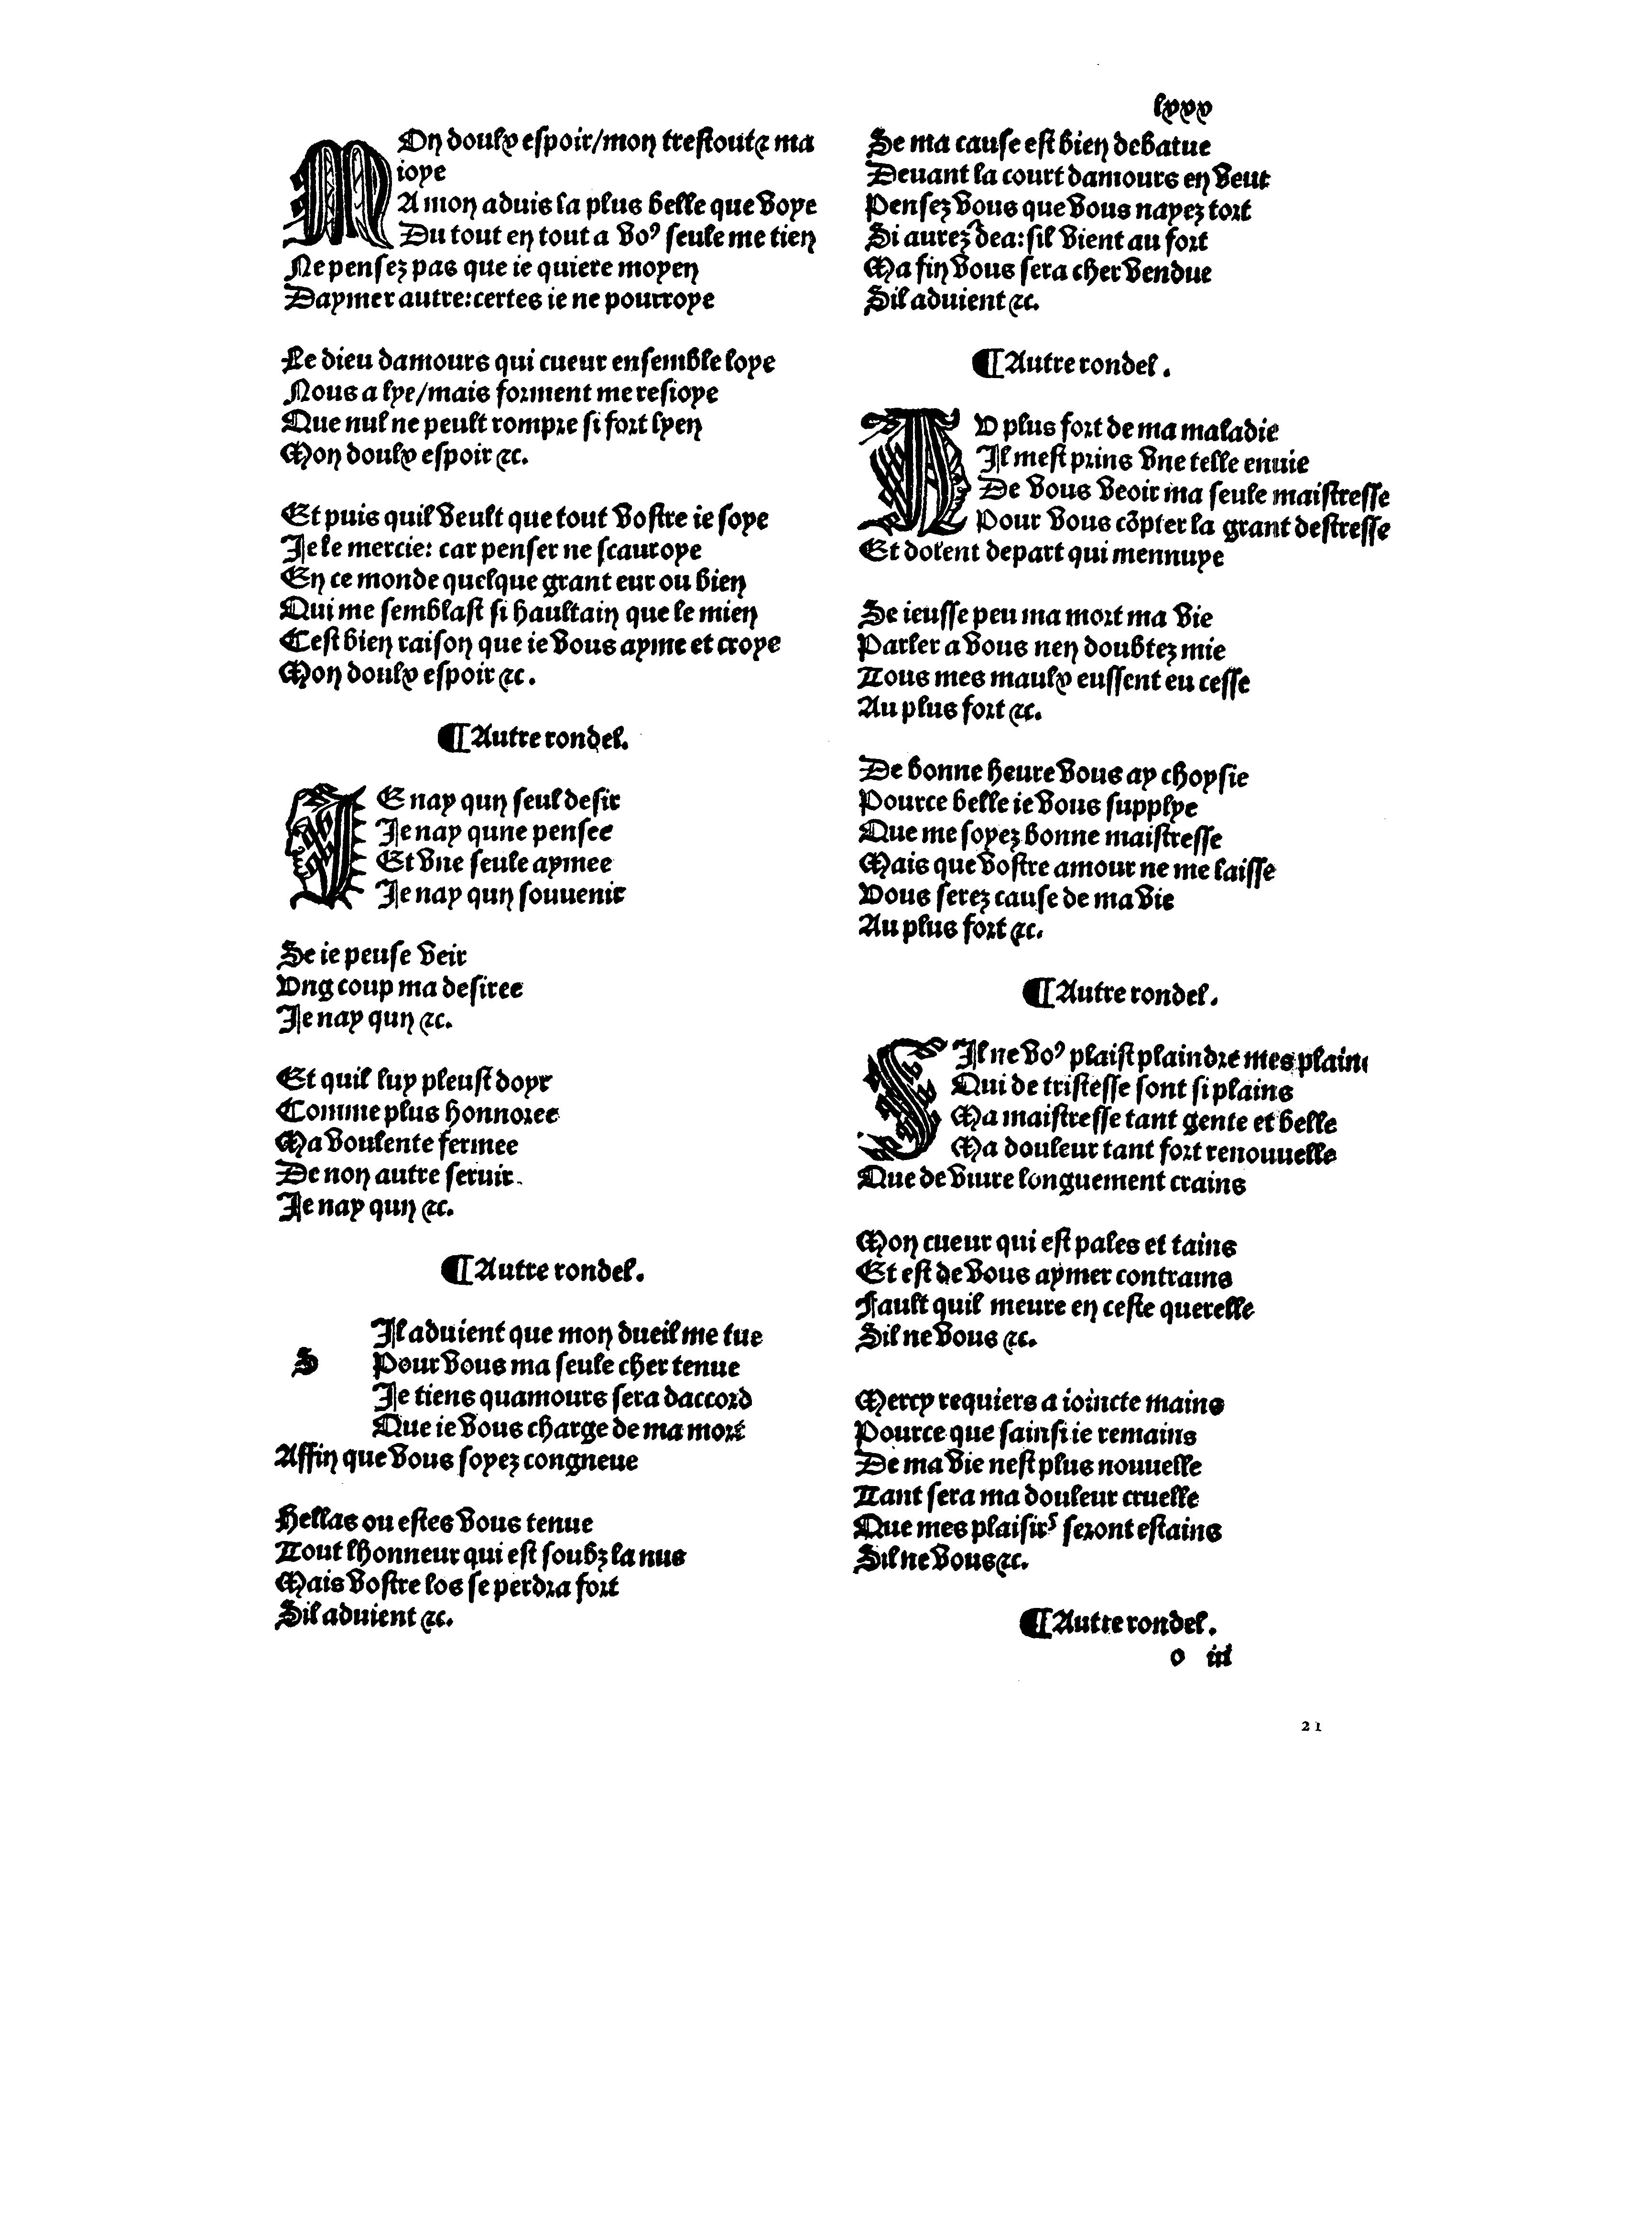 lxxx
MOn doulx espoir/mon trestoute ma
ioye
A mon aduis la plus belle que voye
Du tout en tout a vo⁹ seule me tien
Ne pensez pas que ie quiere moyen
Daymer autre:certes ie ne pourroye
Le dieu damours qui cueur ensemble loye
Nous a lye/mais forment me resioye
Que nul ne peult rompre si fort lyen
Mon doulx espoir ⁊c.
Et puis quil veult que tout vostre ie soye
Je le mercie: car penser ne scauroye
En ce monde quelque grant eur ou bien
Qui me semblast si haultain que le mien
Cest bien raison que ie vous ayme et croye
Mon doulx espoir ⁊c.
¶Autre rondel.
IE nay qun seul desir
Je nay qune pensee
Et vne seule aymee
Je nay qun souuenir
Se ie peuse veir
Vng coup ma desiree
Je nay qun ⁊c.
Et quil luy pleust doyr
Comme plus honnoree
Ma voulente fermee
De non autre seruir.
Je nay qun ⁊c.
¶Autre rondel.
S Il aduient que mon dueil me tue
Pour vous ma seule cher tenue
Je tiens quamours sera daccord
Que ie vous charge de ma mort
Affin que vous soyez congneue
Hellas ou estes vous tenue
Tout lhonneur qui est soubz la nus
Mais vostre los se perdra fort
Sil aduient ⁊c.
Se ma cause est bien debatue
Deuant la court damours en veue
Pensez vous que vous nayez tort
Si aurez dea:sil vient au fort
Ma fin vous sera cher vendue
Sil aduient ⁊c.
¶Autre rondel.
AV plus fort de ma maladie
Il mest prins vne telle enuie
De vous veoir ma seule maistresse
Pour vous cõpter la grant destresse
Et dolent depart qui mennuye
Se ieusse peu ma mort ma vie
Parler a vous nen doubtez mie
Tous mes maulx eussent eu cesse
Au plus fort ⁊c.
De bonne heure vous ay choysie
Pource belle ie vous supplye
Que me soyez bonne maistresse
Mais que vostre amour ne me laisse
Vous serez cause de ma vie
Au plus fort ⁊c.
¶Autre rondel.
SIl ne vo⁹ plaist plaindre mes plain
Qui de tristesse sont si plains
Ma maistresse tant gente et belle
Ma douleur tant fort renouuelle
Que de viure longuement crains
Mon cueur qui est pales et tains
Et est de vous aymer contrains
Fault quil meure en ceste querelle
Sil ne vous ⁊c.
Mercy requiers a ioincte mains
Pource que sainsi ie remains
De ma vie nest plus nouuelle
Tant sera ma douleur cruelle
Que mes plaisirs seront estains
Sil ne vous ⁊c.
¶Autre rondel.
o iii
21